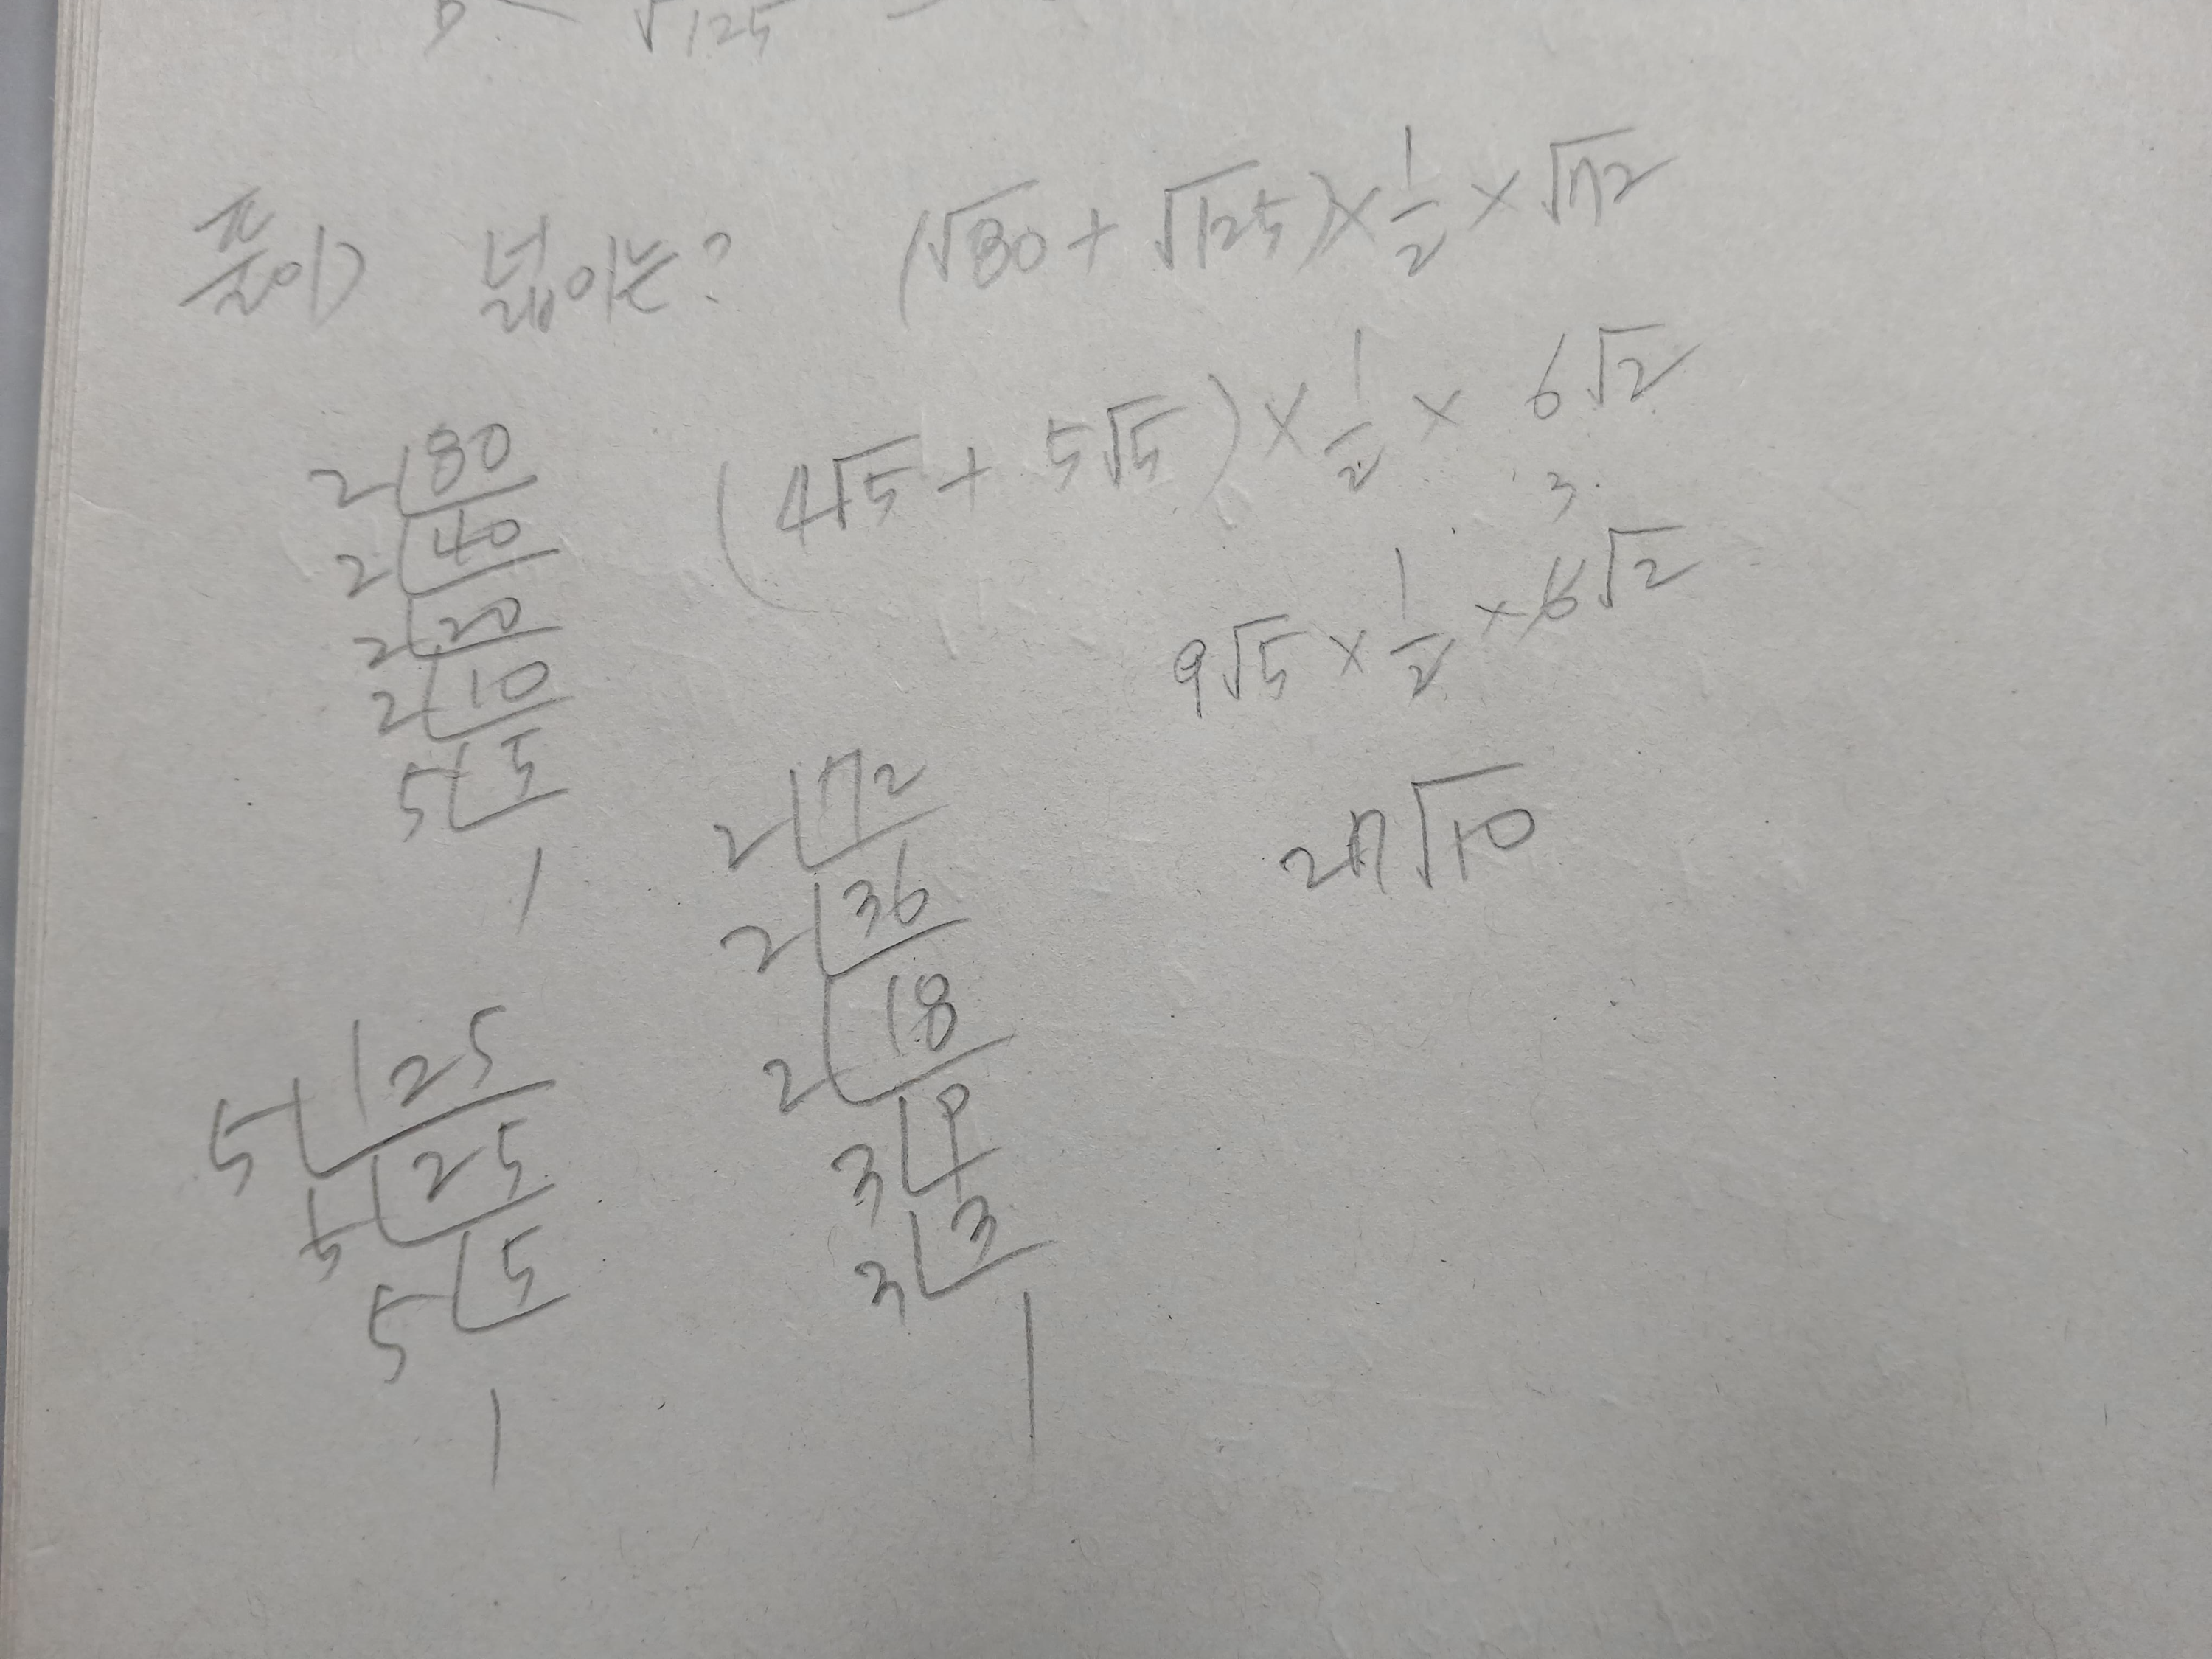 √125
풀이) 넓이는? (√80 + √125) × 1/2 × √72
(4√5 + 5√5) × 1/2 × 6√2
3
9√5 × 1/2 × 6√2
27√10
2 80
2 40
2 20
2 10
5 5
1
2 72
2 36
2 18
3 9
3 3
1
5 125
5 25
5 5
1